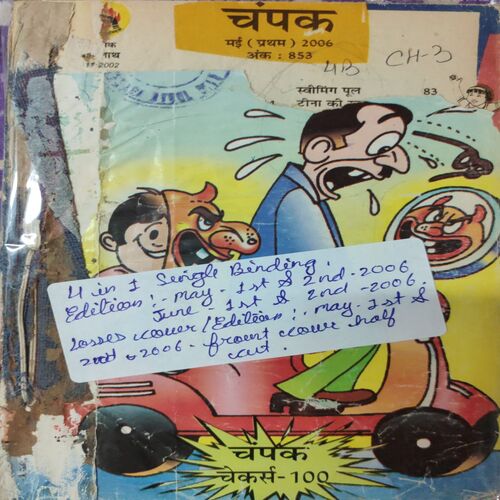 चंपक
मई ( प्रथम ) 2006
अंक : 853
2002
4B CH-3
स्वीमिंग पूल 83
टीना की
4 in 1 Single Binding.
Edition:- May - 1st & 2nd - 2006
June - 1st & 2nd - 2006.
Losses cover/Edition:- May - 1st &
2nd - 2006 - front cover half
cut.
चंपक
चेकर्स-100